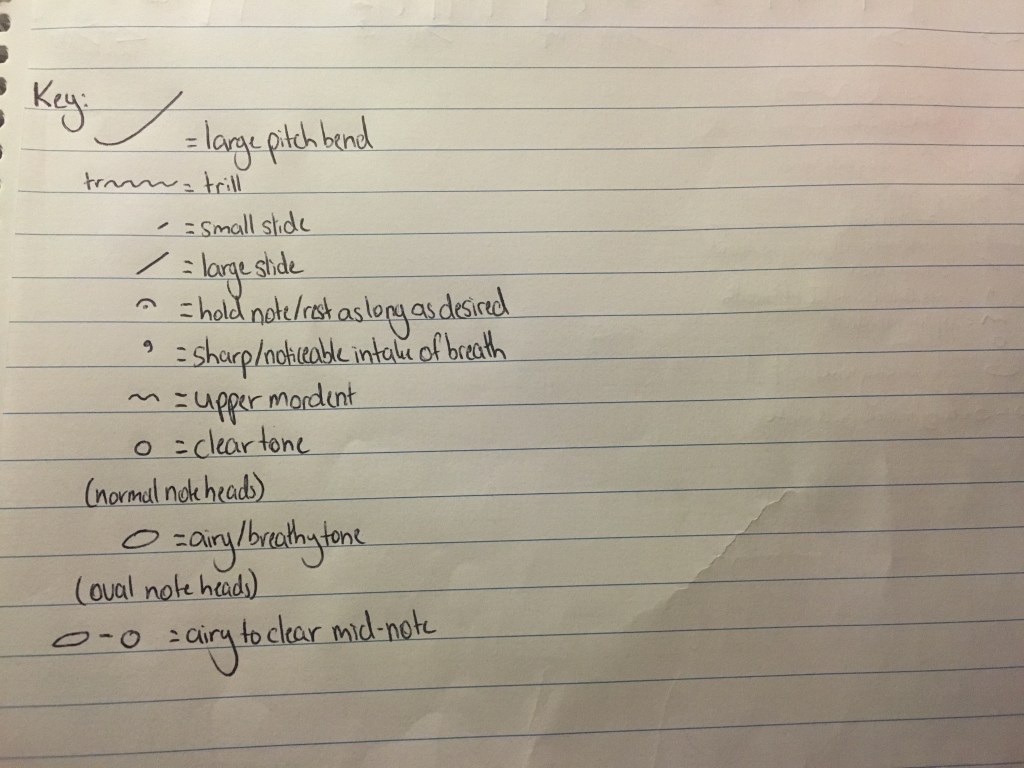 Key:
= large pitch bend
tr = trill
= small slide
= large slide
= hold note/rest as long as desired
= sharp/noticeable intake of breath
= upper mordent
= clear tone
(normal note heads)
= airy/breathy tone
(oval note heads)
= airy to clear mid-note